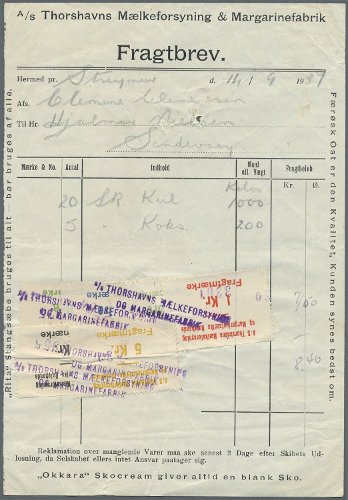 A/s Thorshavns Mælkeforsyning & Margarinefabrik
Fragtbrev.
Hermed pr. d. 14/9 1937
Afs. Clemens
Til Hr. Hjalmar Nielsen
Sandevaag
Mærke & No. Antal Indhold Maal ell. Vægt Fragtbeløb
Kilos Kr. Øre
20 Sk. Kul 1000
5 " Koks 200
7/00
8.40
1 Kr.
Fragtmærke
5 Kr.
Fragtmærke
A/S THORSHAVNS MÆLKEFORSYNING
OG MARGARINEFABRIK
A/S THORSHAVNS MÆLKEFORSYNING
OG MARGARINEFABRIK
A/S THORSHAVNS MÆLKEFORSYNING
OG MARGARINEFABRIK
Reklamation over manglende Varer maa ske senest 2 Dage efter Skibets Ud-
losning, da Selskabet ellers intet Ansvar paatager sig.
„Okkara" Skocream giver altid en blank Sko.
„Rita" Sfangsæbe bruges til alt — bør bruges af alle.
Færøsk Ost er den Kvalitet, Kunden synes bedst om.